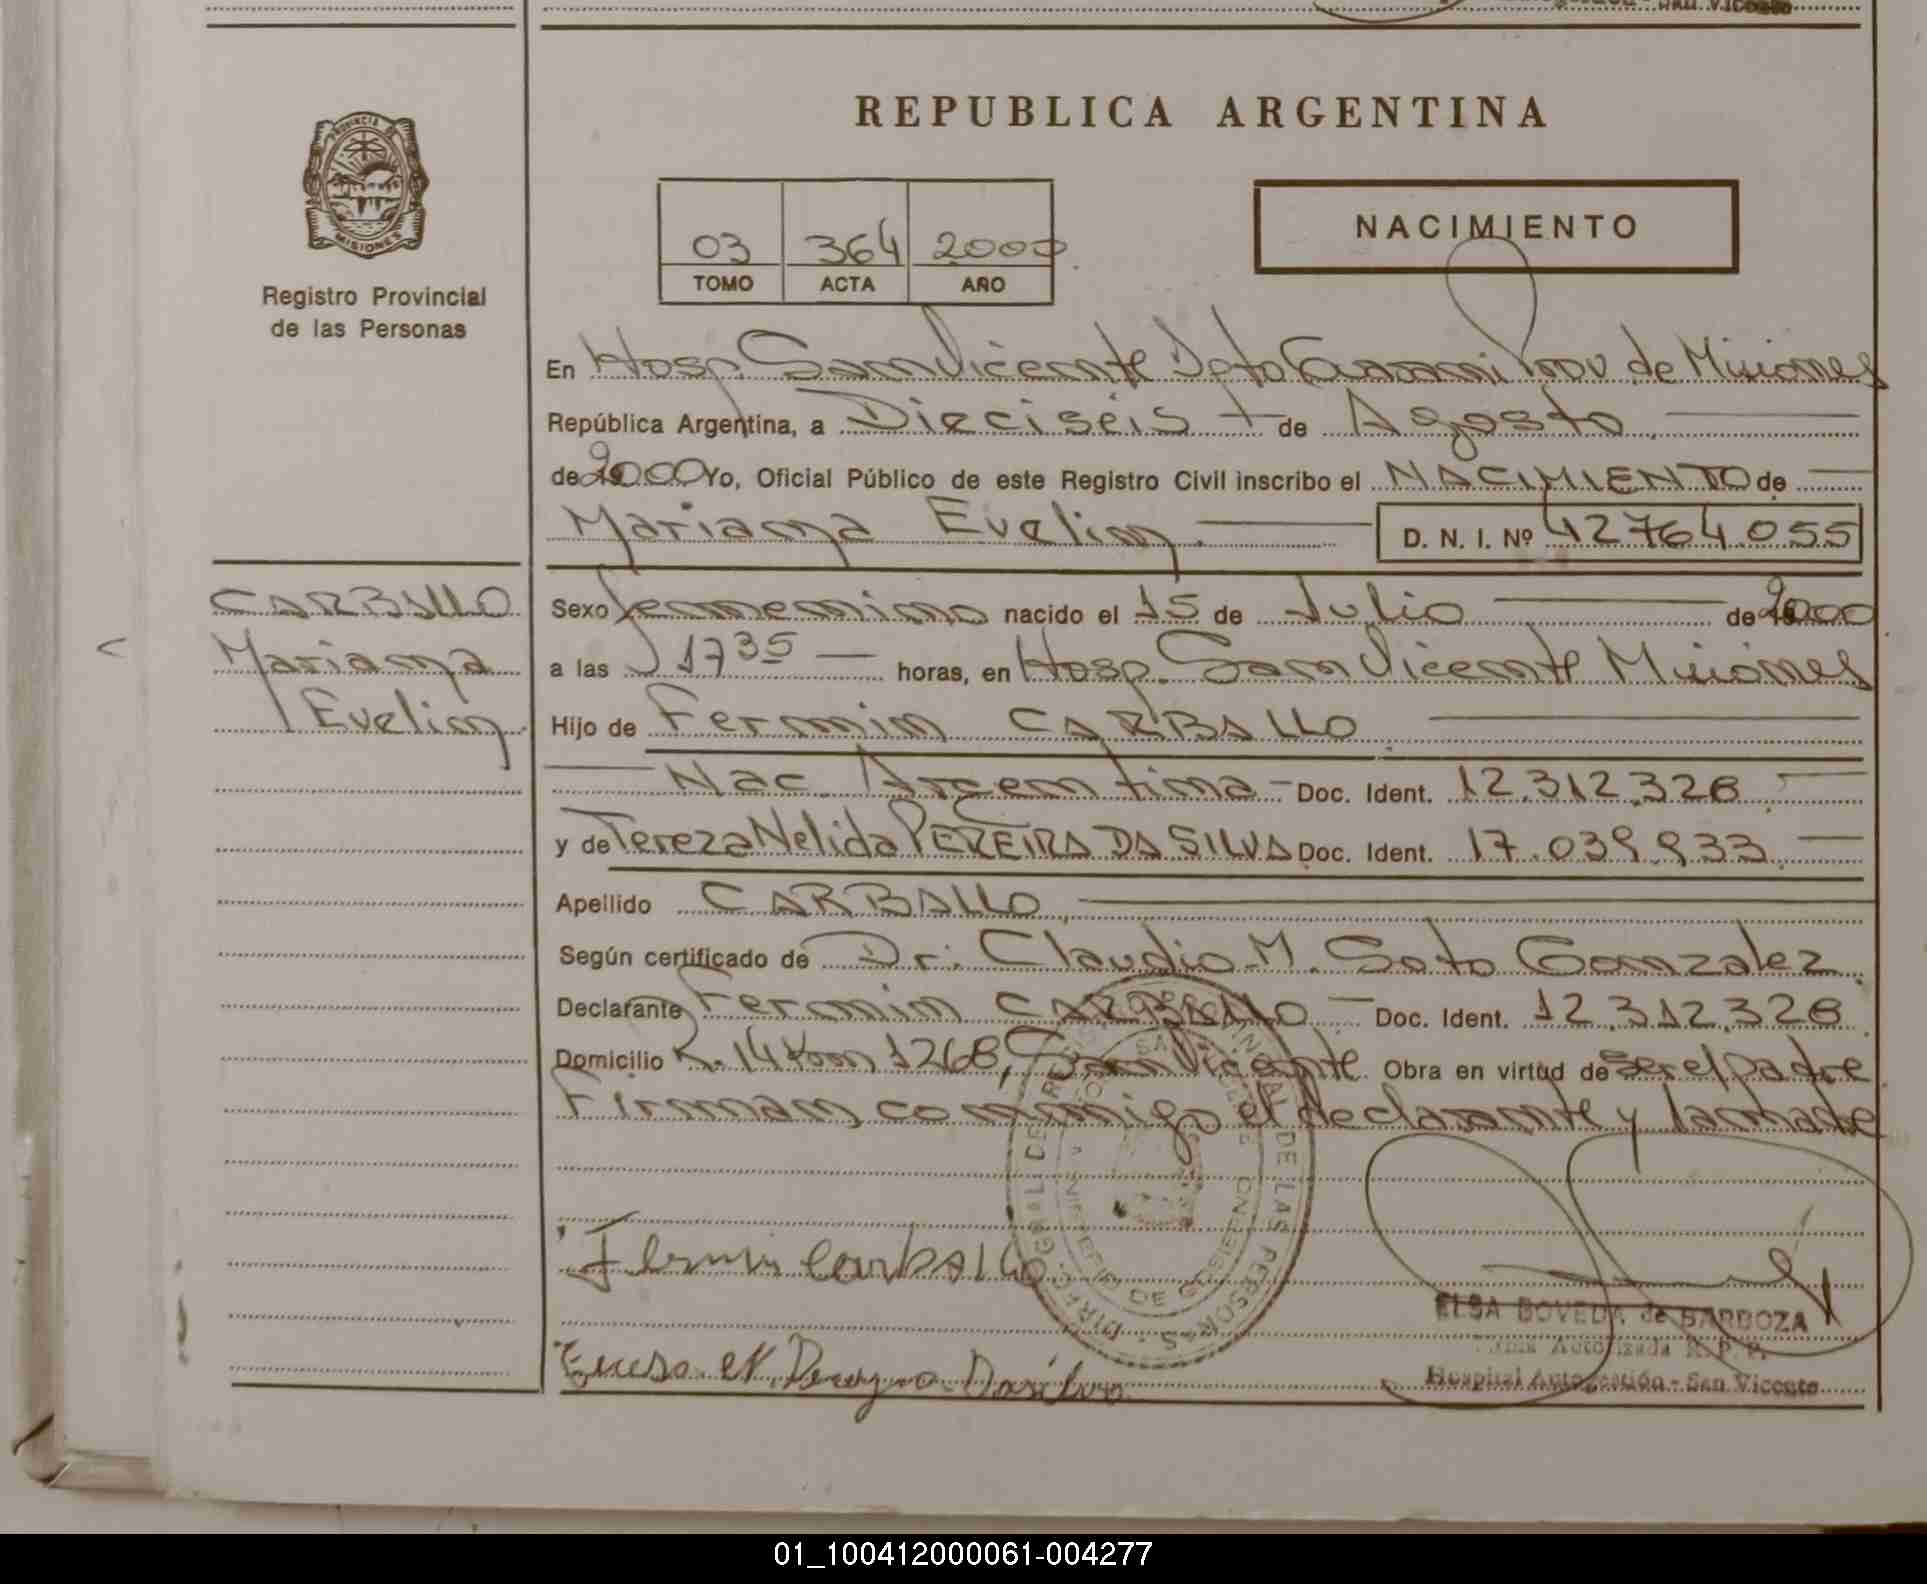 San Vicente
REPUBLICA ARGENTINA
PROVINCIA DE
MISIONES
Registro Provincial
de las Personas
03 364 2000
TOMO ACTA AÑO
NACIMIENTO
En Hosp. San Vicente Dpto Guarani Prov de Misiones
República Argentina, a Dieciséis de Agosto
de 2000 Yo, Oficial Público de este Registro Civil inscribo el NACIMIENTO de
Mariana Evelin D. N. I. Nº 42764.055
CARBALLO
Mariana
Evelin
Sexo femenino nacido el 15 de Julio de 2000
a las 17 35 horas, en Hosp. San Vicente Misiones
Hijo de Fermin CARBALLO
Nac. Argentina - Doc. Ident. 12.312.328
y de Tereza Nelida PEREIRA DA SILVA Doc. Ident. 17.039.933
Apellido CARBALLO
Según certificado de Dr. Claudio M. Soto Gonzalez
Declarante Fermin CARBALLO Doc. Ident. 12.312.328
Domicilio R. 14 Km 1268, San Vicente Obra en virtud de ser el padre
Firman conmigo el declarante y la madre
Fermin Carballo
ELSA BOVEDA de BARBOZA
Autorizada R. P. P.
Hospital Autogestión - San Vicente
01_100412000061-004277